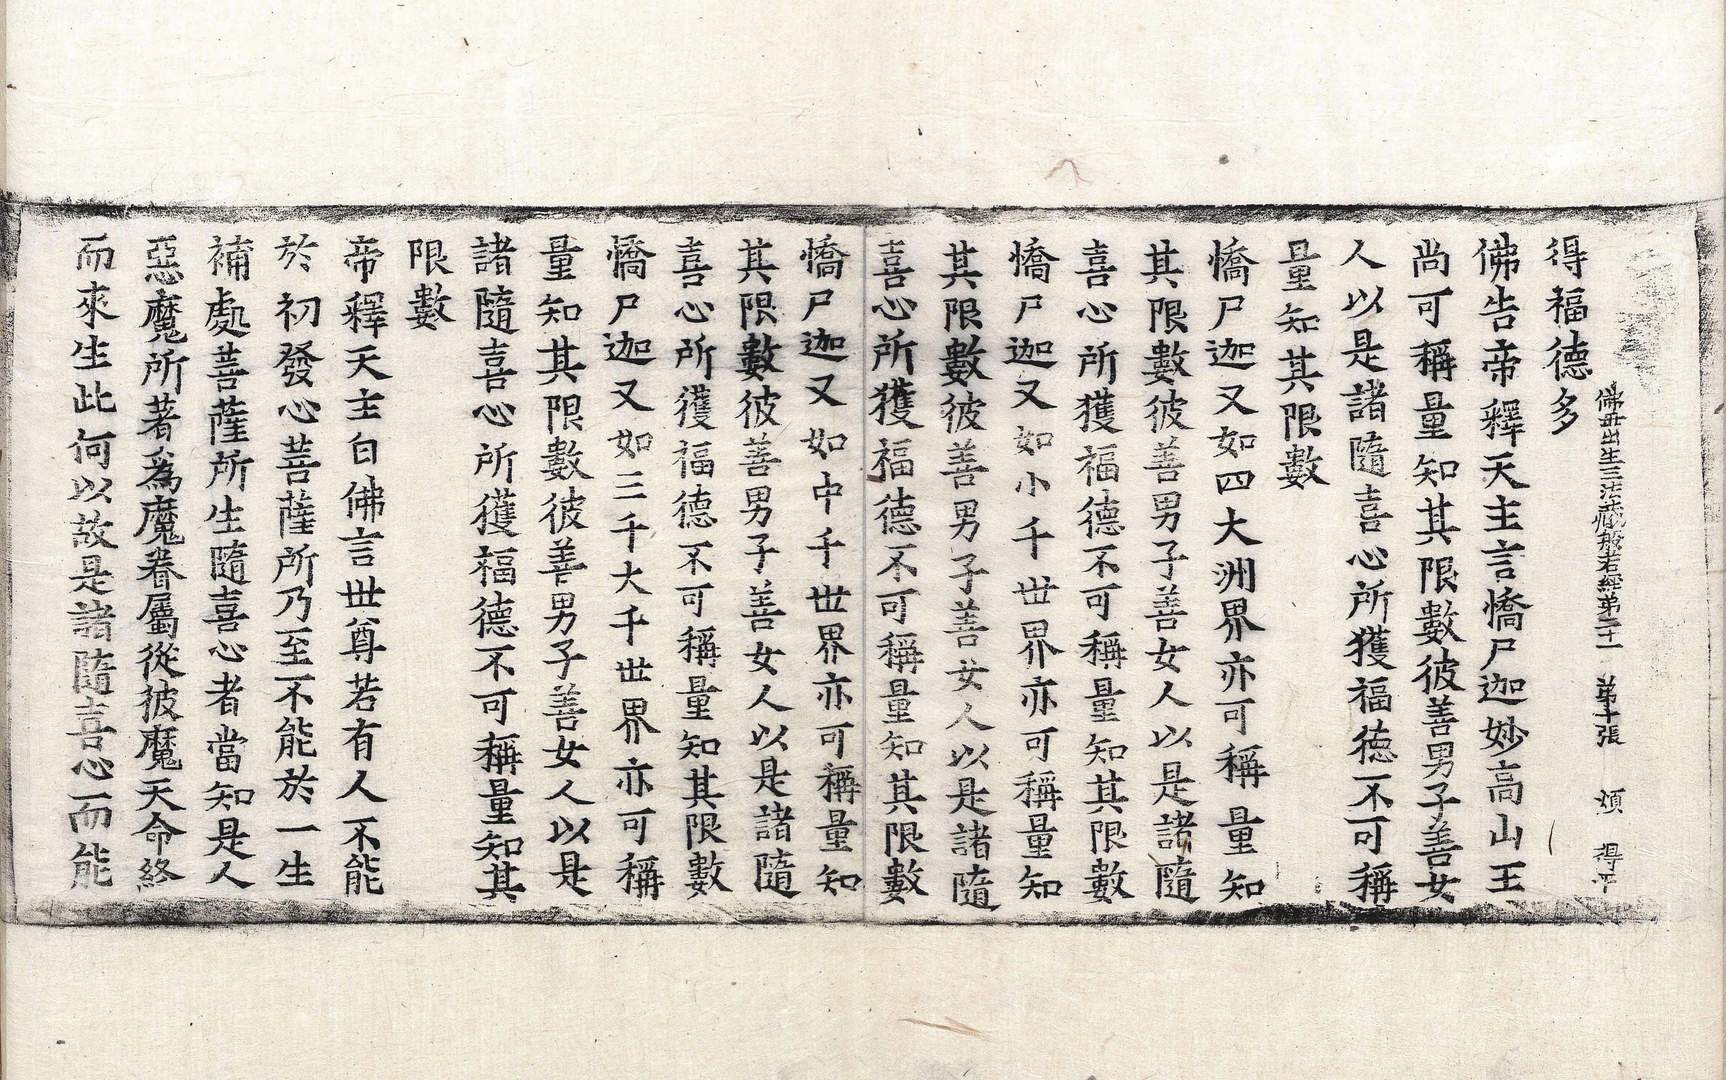 佛母出生三法藏般若經第二十一　第十張　煩　得平
得福德多
佛告帝釋天主言憍尸迦妙高山王
尚可稱量知其限數彼善男子善女
人以是諸隨喜心所獲福德不可稱
量知其限數
憍尸迦又如四大洲界亦可稱量知
其限數彼善男子善女人以是諸隨
喜心所獲福德不可稱量知其限數
憍尸迦又如小千世界亦可稱量知
其限數彼善男子善女人以是諸隨
喜心所獲福德不可稱量知其限數
憍尸迦又如中千世界亦可稱量知
其限數彼善男子善女人以是諸隨
喜心所獲福德不可稱量知其限數
憍尸迦又如三千大千世界亦可稱
量知其限數彼善男子善女人以是
諸隨喜心所獲福德不可稱量知其
限數
帝釋天主白佛言世尊若有人不能
於初發心菩薩所乃至不能於一生
補處菩薩所生隨喜心者當知是人
惡魔所著爲魔眷屬從彼魔天命終
而來生此何以故是諸隨喜心而能